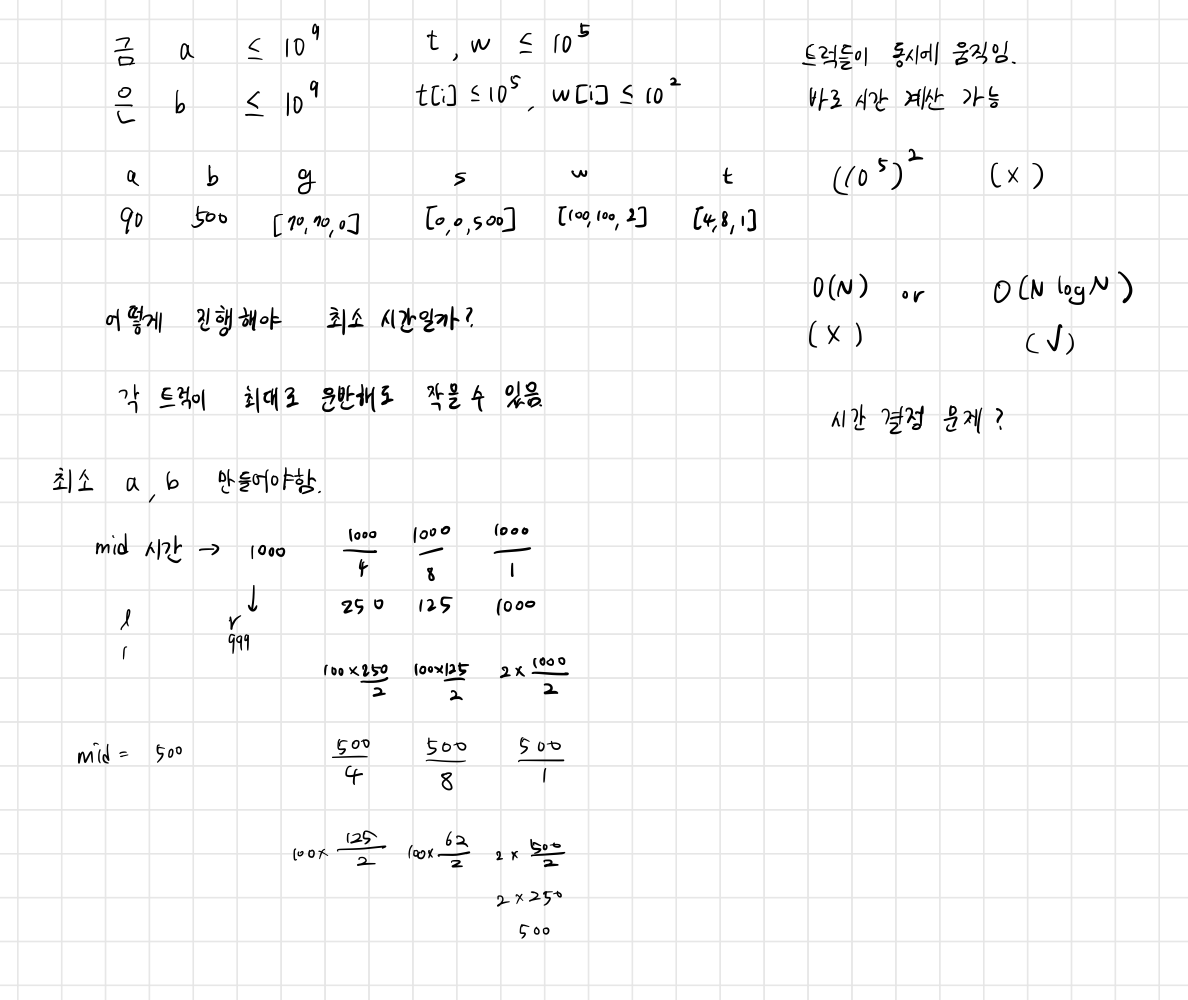 금 a ≤ 10^9 t, w ≤ 10^5
은 b ≤ 10^9 t[i] ≤ 10^5, w[i] ≤ 10^2
트럭들이 동시에 움직임.
바로 시간 계산 가능
a b g s w t
90 500 [70,70,0] [0,0,500] [100,100,2] [4,8,1]
((10^5)^2 (X)
O(N) or O(N log N)
(X) (√)
어떻게 진행해야 최소 시간일까?
각 트럭이 최대로 운반해도 작을 수 있음
시간 결정 문제?
최소 a, b 만들어야함.
mid 시간 → 1000 1000/4 1000/8 1000/1
↓ 250 125 1000
l r
1 999
100×250/2 100×125/2 2×1000/2
mid = 500 500/4 500/8 500/1
100×125/2 100×62/2 2×500/2
2×250
500